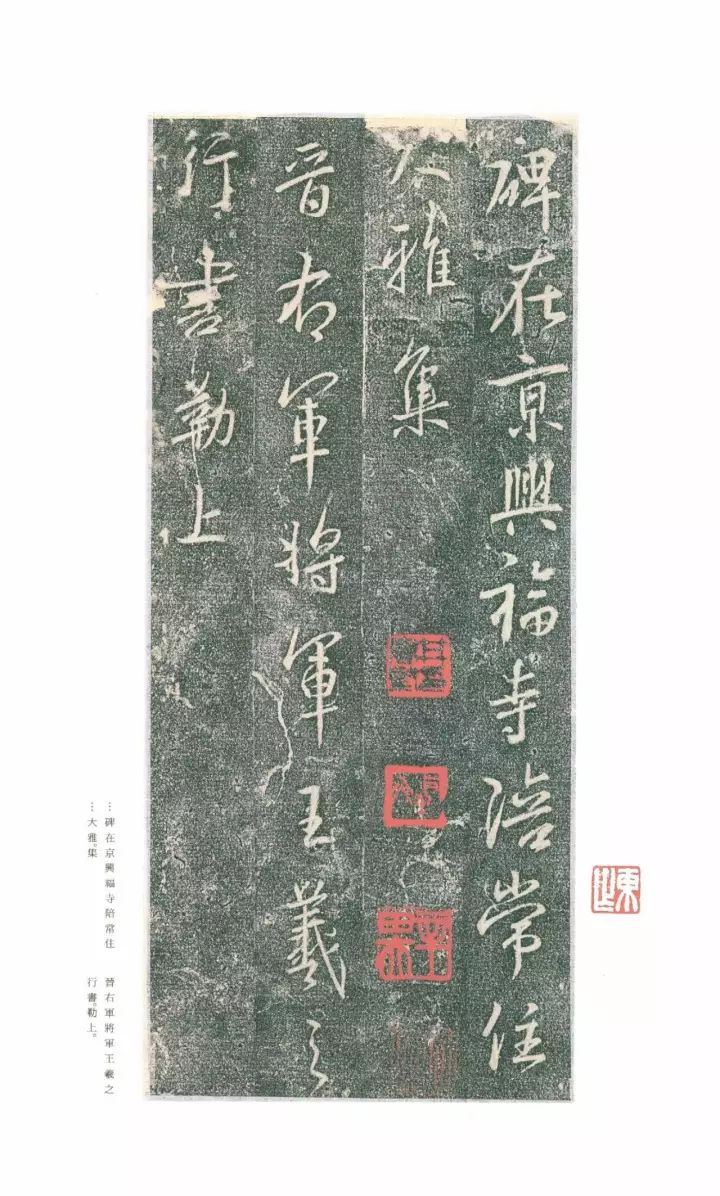 碑在京興福寺陪常住
大雅集
晉右軍將軍王羲之
行書勒上
…碑在京興福寺陪常住
…大雅。集
晉右軍將軍王羲之
行書。勒上。